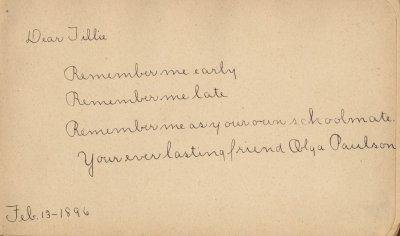 Dear Tillie
Remember me early
Remember me late
Remember me as your own schoolmate.
Your ever lasting friend Olga Paulson
Feb. 13-1896